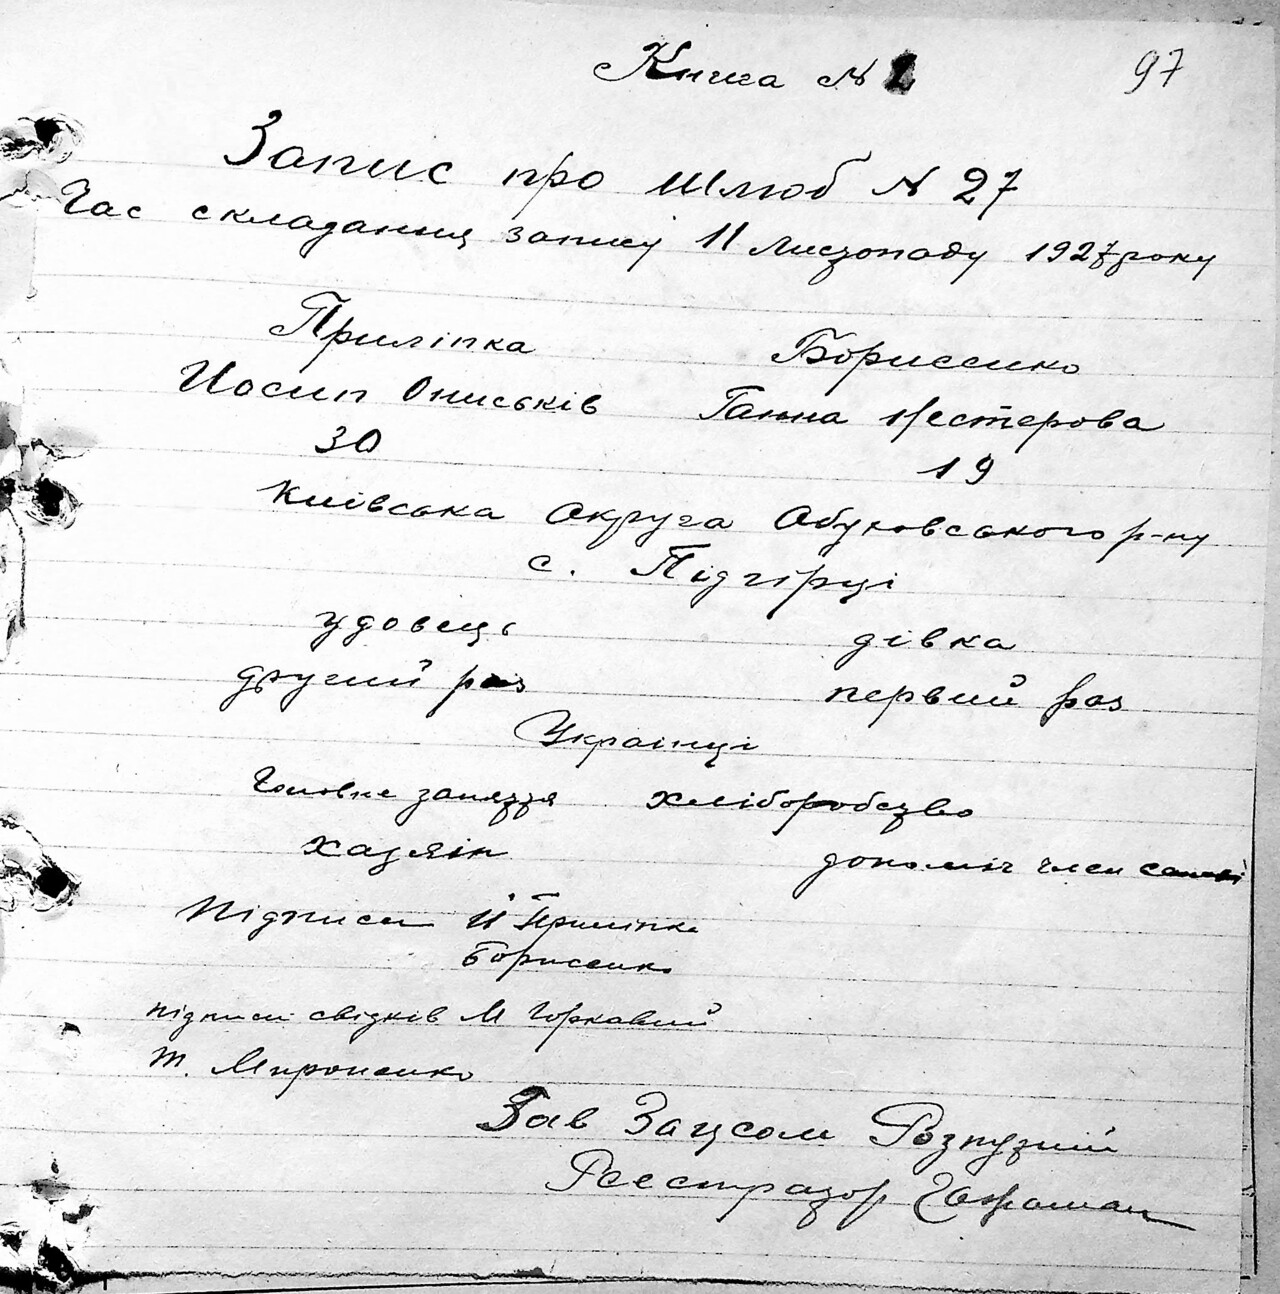 Книга № 2 97
Запис про шлюб № 27
Час складання запису 11 листопаду 1927 року
Приліпка Борисенко
Йосип Ониськів Ганна Нестерова
30 19
Київська округа Обуховського р-ну
с. Підгірці
удовець дівка
другий раз первий раз
Українці
Головне заняття хліборобство
хазяїн допоміч член самьї
Підписи Й Приліпка
Борисенко
підписи свідків М Горкавий
Т. Мироненко
Зав Загсом
Реєстратор